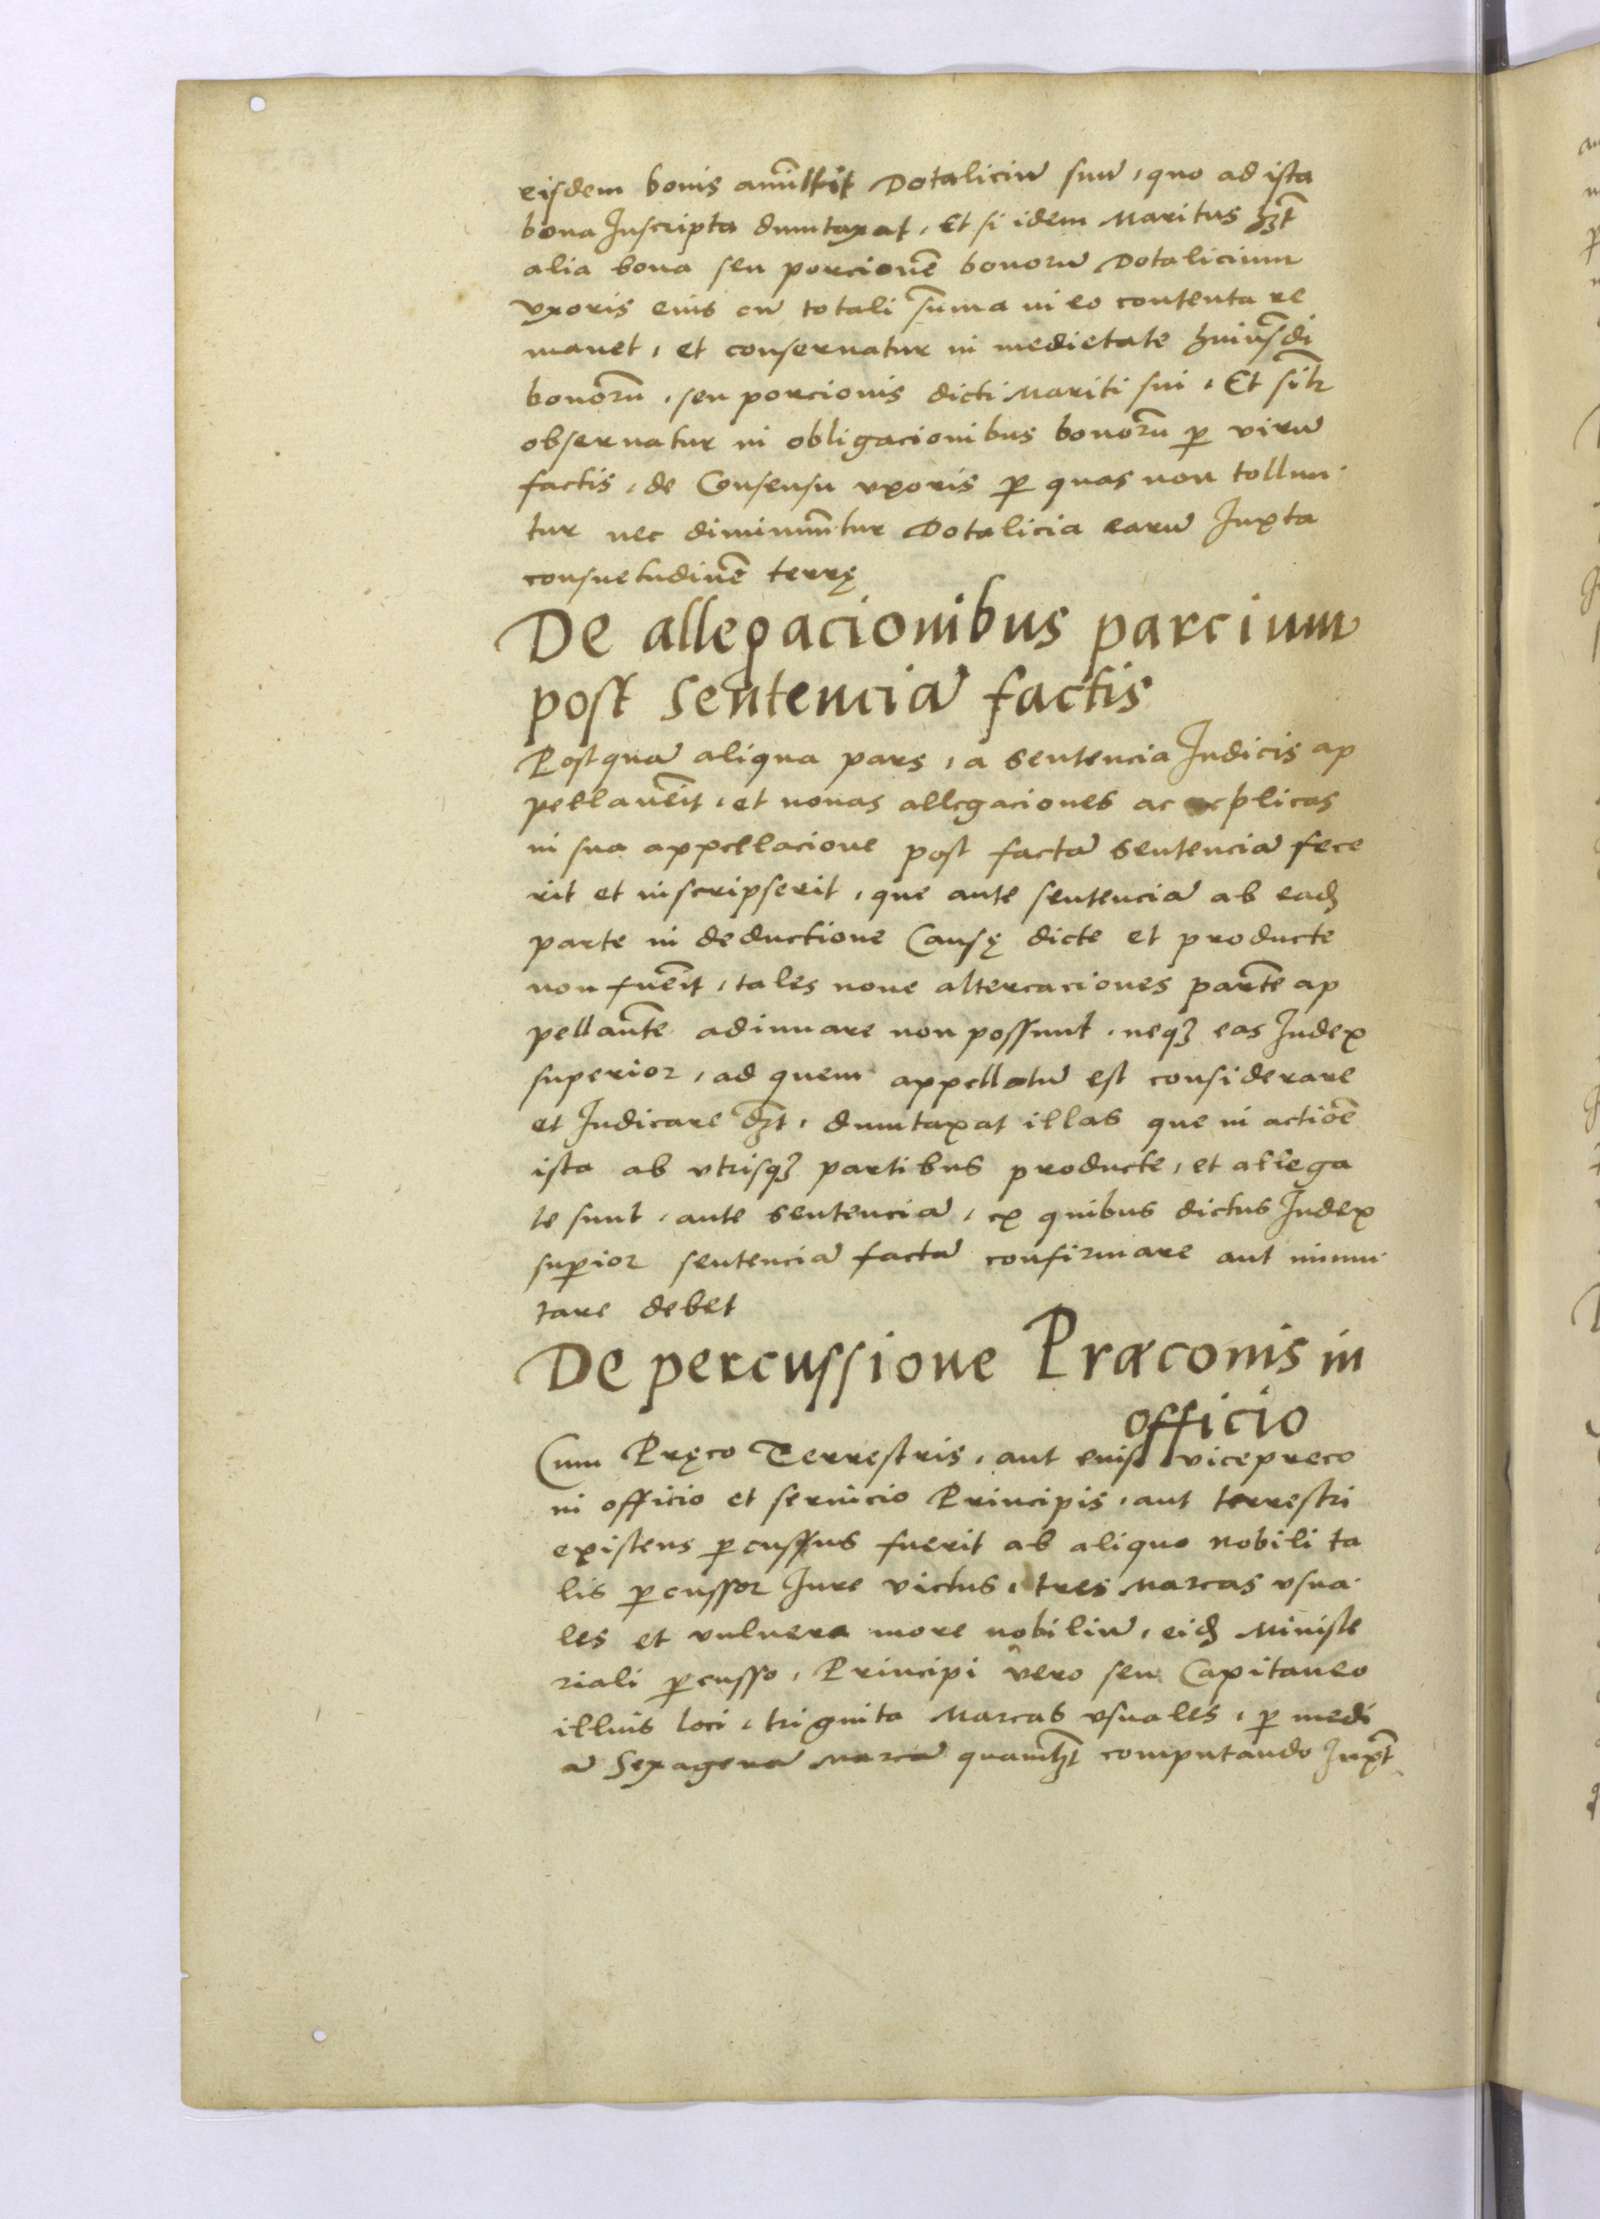 eisdem bonis amittit Dotaliciũ suũ, quo ad ista
bona Inscripta dumtaxat, Et si idem Maritus hꝫt
alia bona seu porcionẽ bonorũ Dotalicium
vxoris eius cũ totali sũma in eo contenta re
manet, et conseruatur in medietate huiusd̃i
bonorũ, seu porcionis dicti Mariti sui, Et silr
obseruatur in obligacionibus bonorũ ꝑ virũ
factis, de Consensu vxoris ꝑ quas non tollun
tur nec diminuũtur Dotalicia earũ Juxta
consuetudinẽ terrę
De allegacionibus parcium
post sentenciã factis
Postquã aliqua pars, a sentencia Judicis ap
pellauẽit, et nouas allegaciones ac replicas
in sua appellacione post factã sentenciã fece
rit et inscripserit, que ante sentenciã ab eadꝫ
parte in deductione Causę dicte et producte
non fuẽit, tales noue altercaciones partẽ ap
pellantẽ adiuuare non possunt, neqꝫ eas Judex
superior, ad quem appellatũ est considerare
et Judicare dꝫt, dumtaxat illas que in actiõe
ista ab vtrisqꝫ partibus producte, et allega
te sunt, ante sentenciã, ex quibus dictus Judex
suꝑior sentenciã factã confirmare aut immu
tare debet
De percussione Præconis in
officio
Cum Pręco Terrestris, aut eius vicepreco
in officio et seruicio Principis, aut terrestri
existens ꝑcussus fuerit ab aliquo nobili ta
lis ꝑcussor Jure victus, tres Marcas vsua
les et vulnera more nobiliũ, eidꝫ Ministe
riali ꝑcusso, Principi vero seu Capitaneo
illius loci, triginta Marcas vsuales, ꝑ medi
ã Sexagenã Marcã quamlꝫt computando Juxt